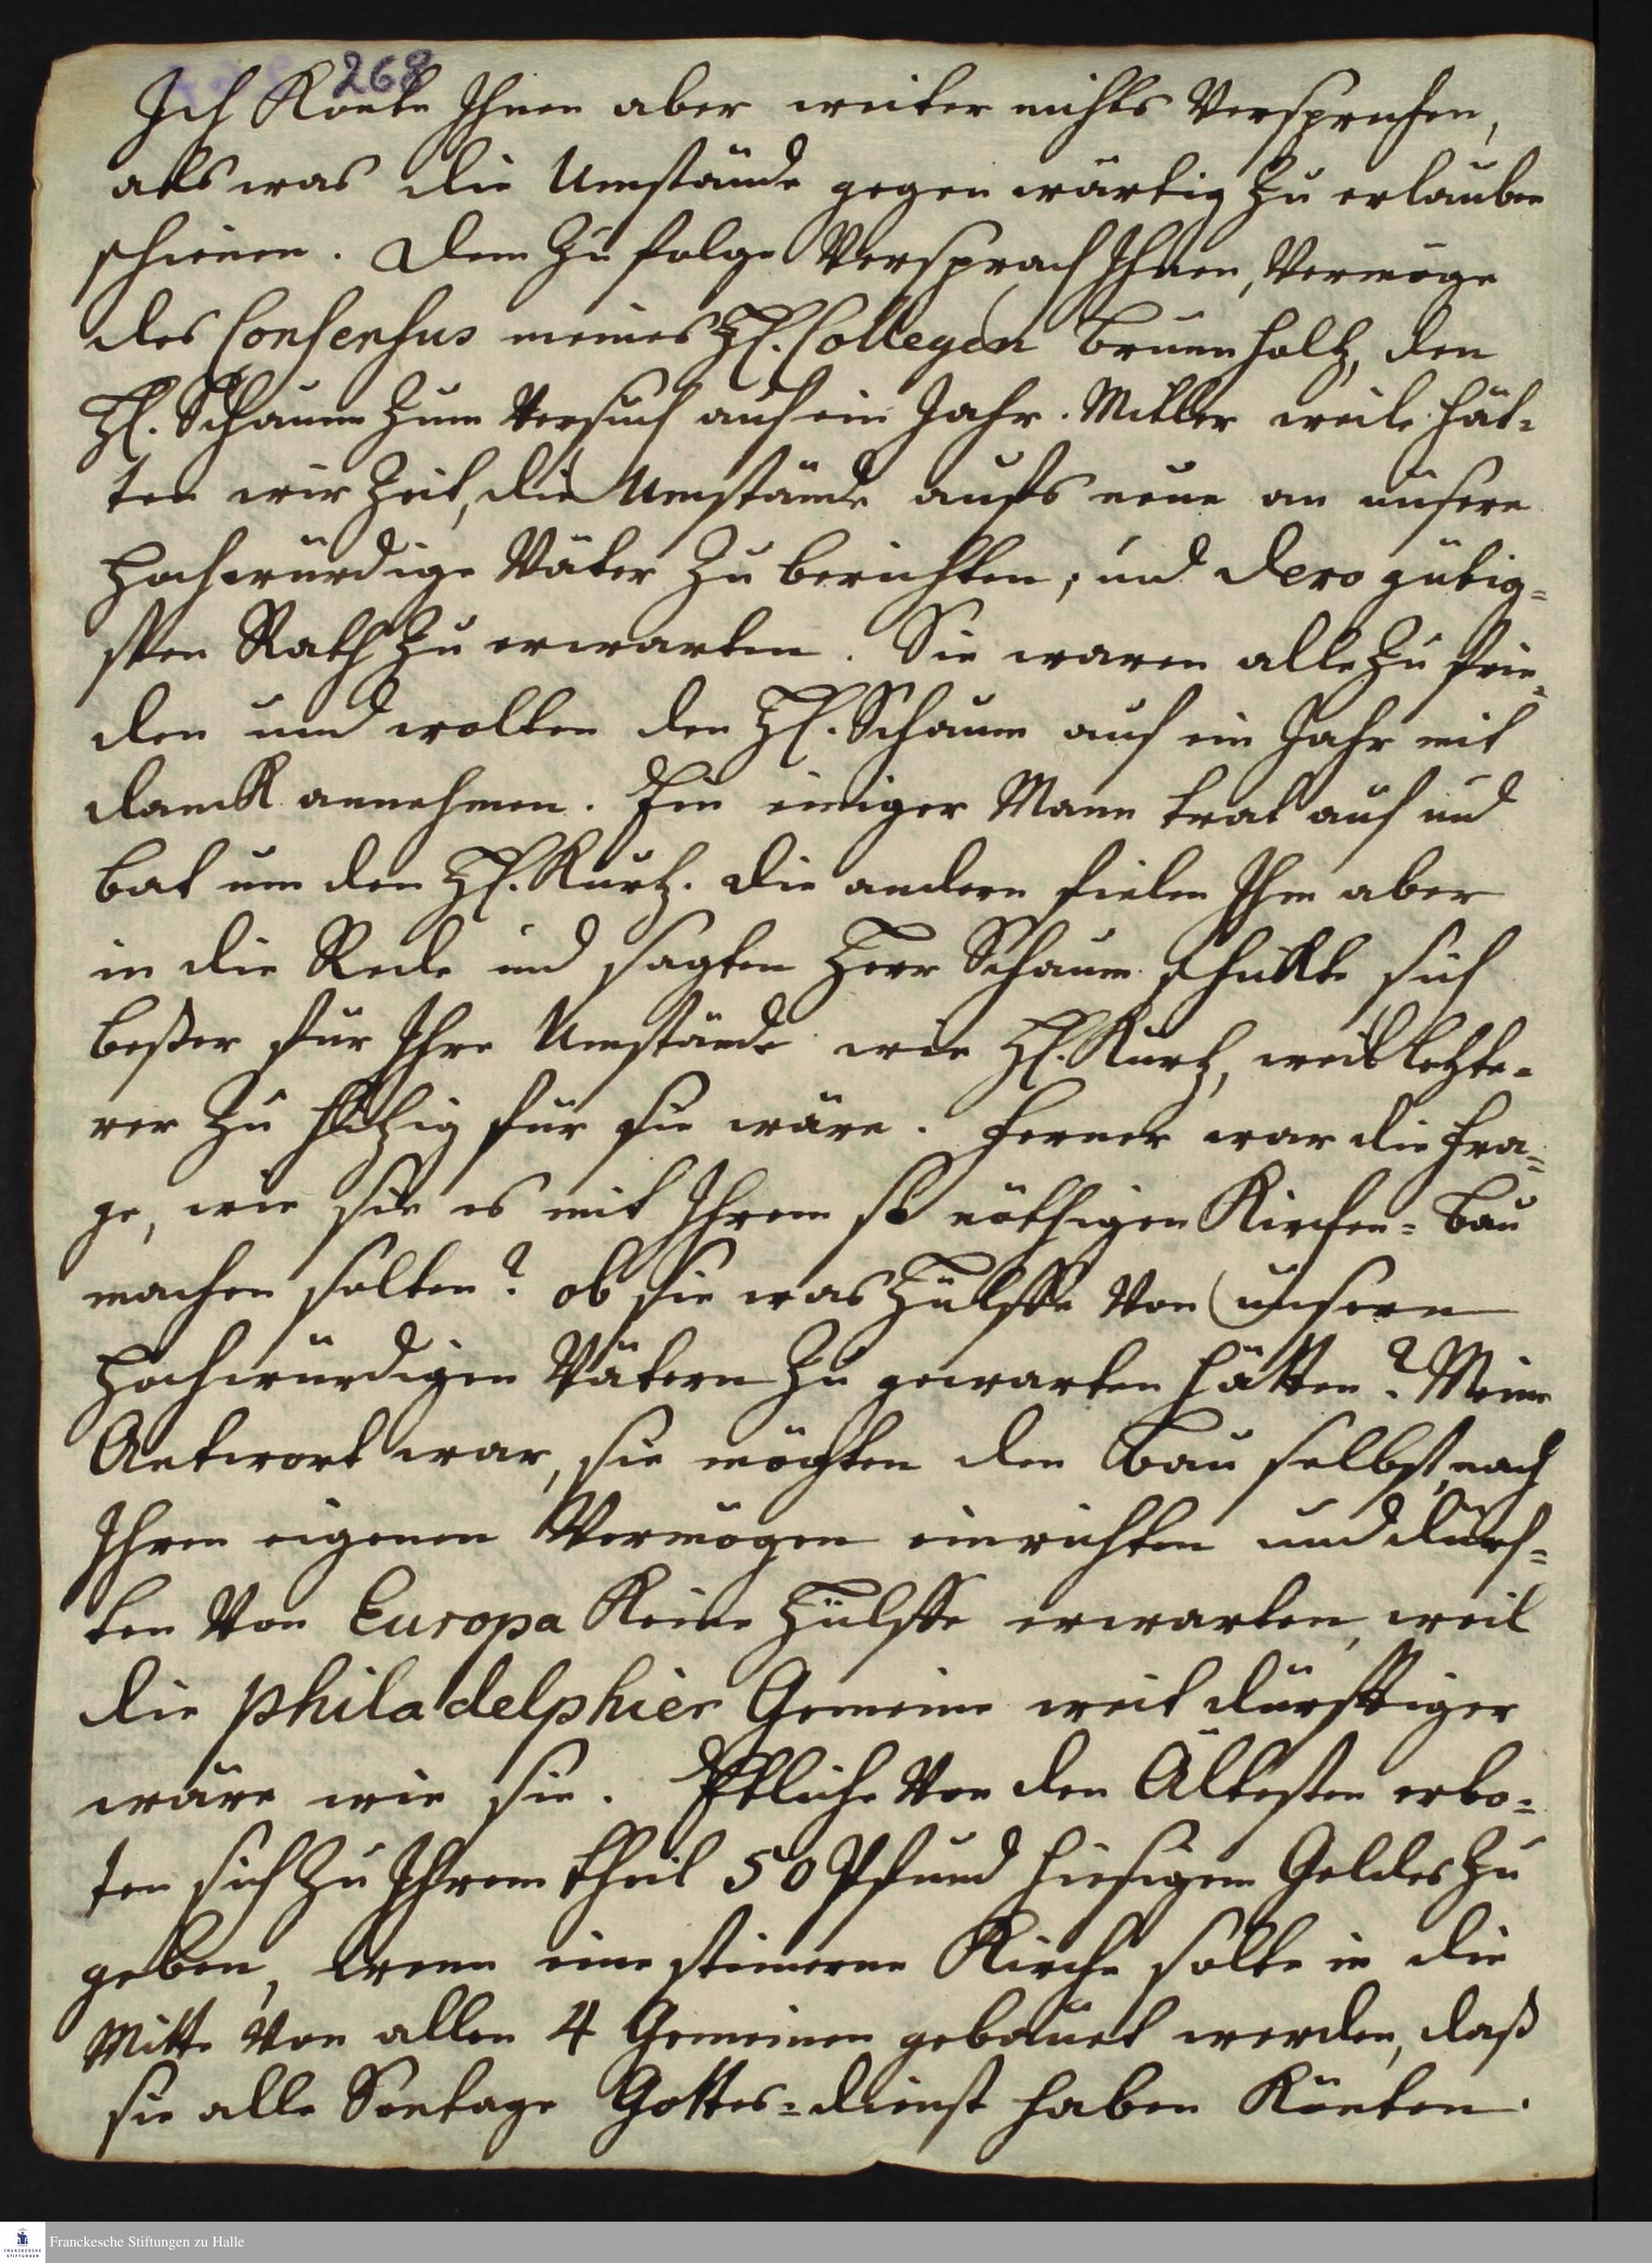 268
Ich Konte Ihnen aber weiter nichts Versprechen,
als was die Umstände gegenwärtig zu erlauben
schienen. Dem zu folge Versprach Ihnen, Vermöge
des Consensus meines H. Collegen Brunnholtz, den
H. Schaum zum Versuch auf ein Jahr. Mitler weile hät-
ten wir Zeit, die Umstände aufs neue an unsere
Hochwürdige Väter zu berichten, und dero gütig-
sten Rath zu erwarten. Sie waren alle zu frie-
den und wolten den H. Schaum auf ein Jahr mit
danck annehmen. Ein einiger Mann trat auf und
bat um den H. Kurtz. die andern fielen Ihm aber
in die Rede und sagten Herr Schaum schickte sich
beßer für Ihre Umstände wie H. Kurtz, weil letzte-
rer zu hitzig für sie wäre. Ferner war die Fra-
ge, wie sie es mit Ihrem so nöthigen Kirchen-Bau
machen solten? ob sie was Hülffe von unsern
Hochwürdigen Vätern zu gewarten hätten? Meine
Antwort war, sie möchten den Bau selbst nach
Ihrem eigenen Vermögen einrichten und dürf-
ten von Europa Keine Hülffe erwarten, weil
die philadelphier Gemeine weit dürfftiger
wäre wie sie. Etliche von den Ältesten erbo-
ten sich zu Ihrem theil 50 Pfund hiesigen Geldes zu
geben, wenn eine steinerne Kirche solte in die
Mitte von allen 4 Gemeinen gebauet werden, daß
sie alle Sontage Gottes-dienst haben Könten.
FRANCKESCHE STIFTUNGEN
Franckesche Stiftungen zu Halle